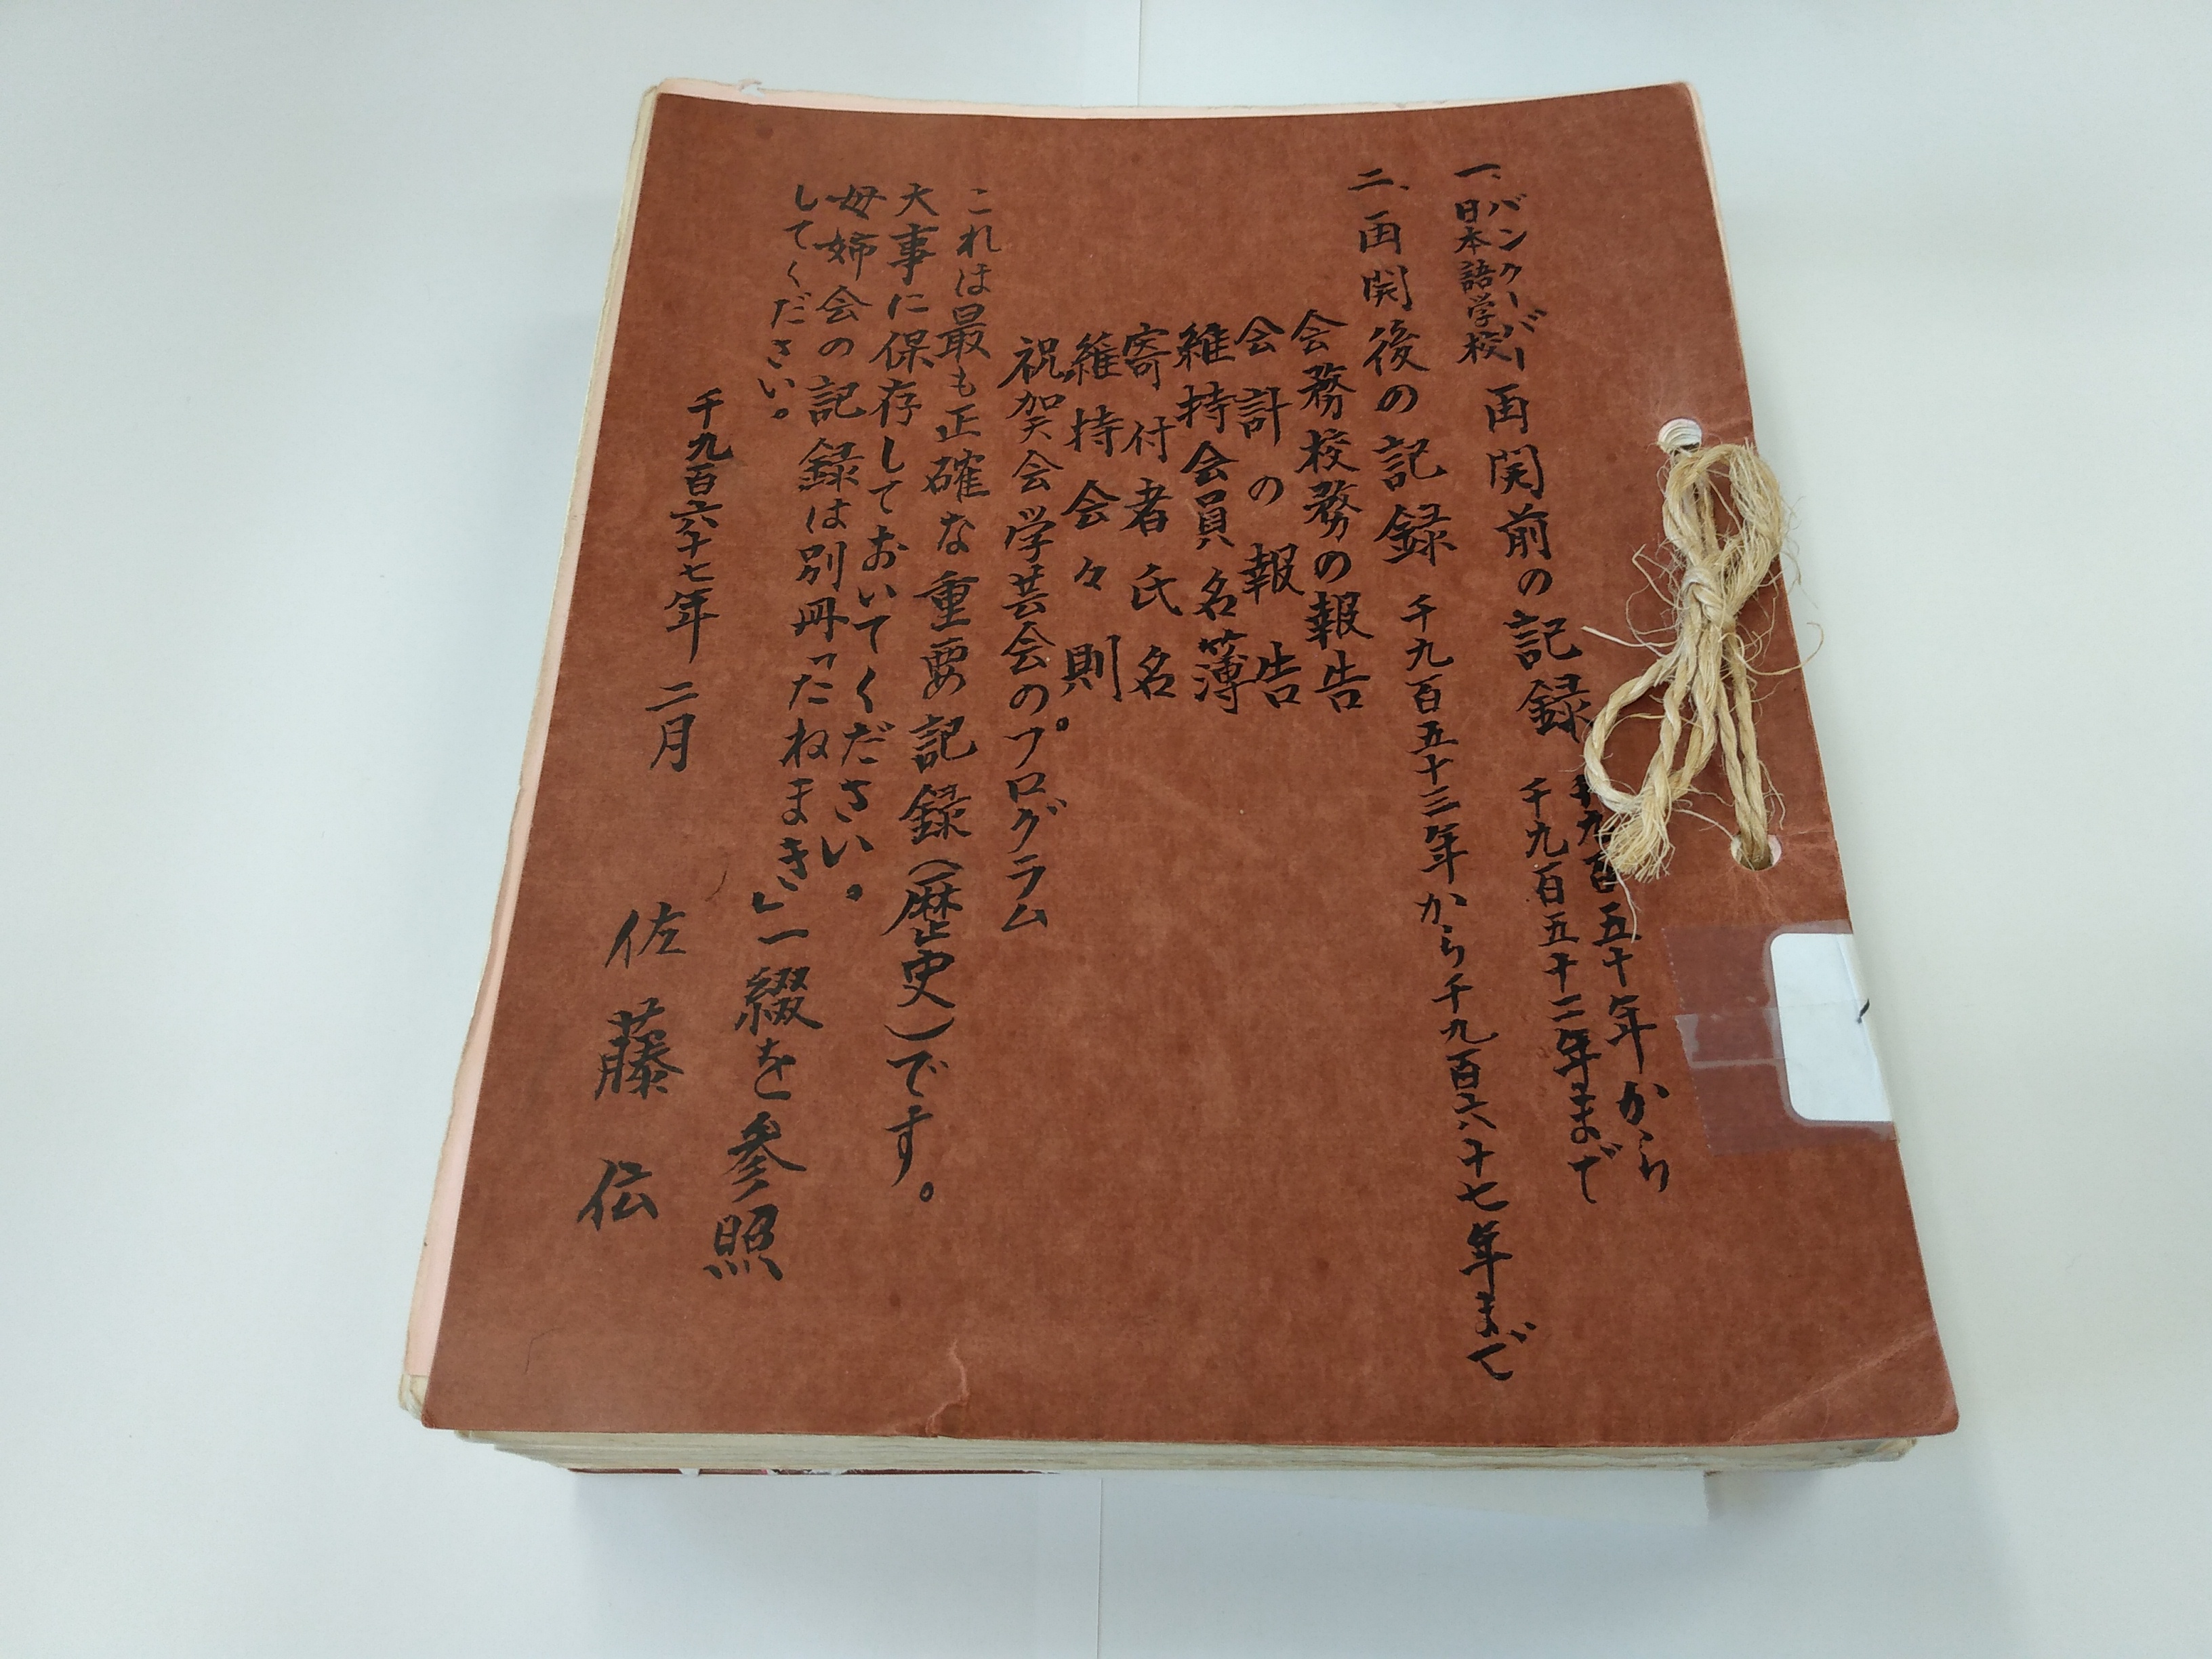 一、バンクーバー日本語学校再開前の記録 千九百五十年から千九百五十二年まで
二、再開後の記録 千九百五十三年から千九百六十七年まで
会務校務の報告
会計の報告
維持会員名簿
寄付者氏名
維持会々則
祝賀会学芸会のプログラム
これは最も正確な重要記録(歴史)です。
大事に保存しておいてください。
母姉会の記録は別冊「たねまき」一綴を参照
してください。
千九百六十七年 二月
佐藤伝